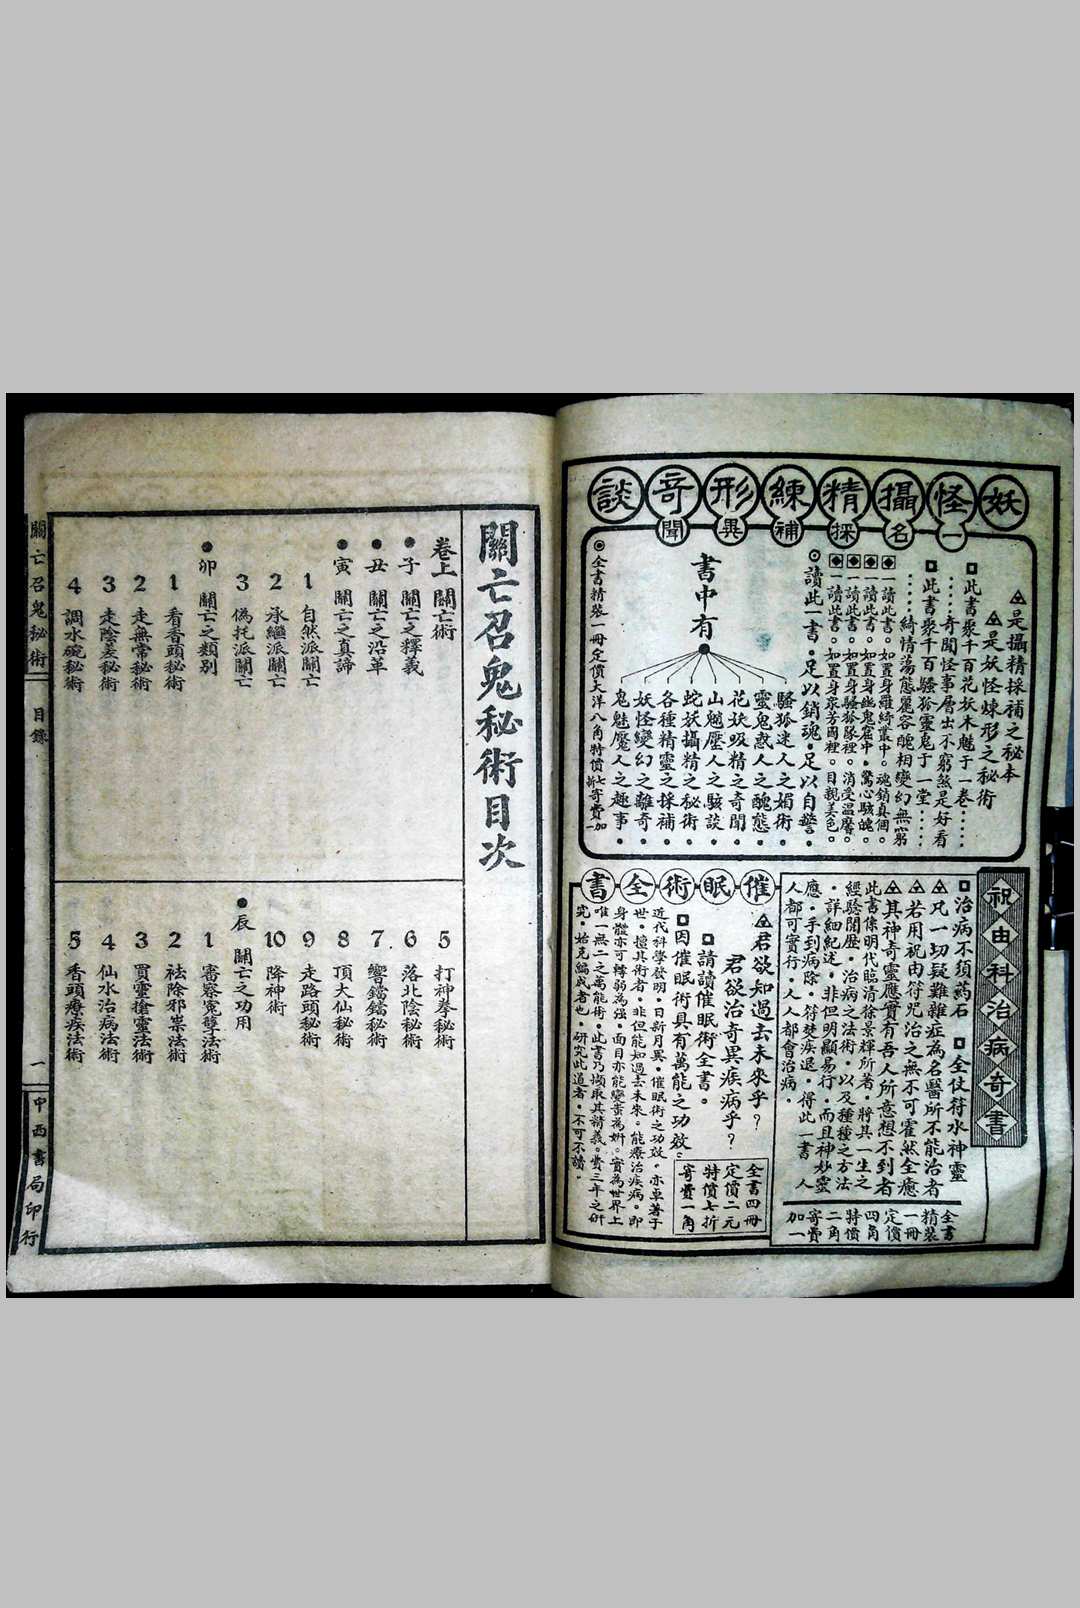 妖怪攝精練形奇談
一名採補異聞
▲是攝精採補之秘本
▲是妖怪煉形之秘術
□此書聚千百花妖木魅于一卷……
……奇聞怪事層出不窮煞是好看
□此書聚千百騷狐靈鬼于一堂……
……綺情蕩態麗容醜相變幻無窮
一讀此書。如置身羅綺叢中。魂銷真個。
一讀此書。如置身幽鬼窟中。驚心駭魄。
一讀此書。如置身騷狐隊裡。消受温馨。
一讀此書。如置身衆芳國裡。目親美色。
⊙讀此一書。足以銷魂。足以自警。
書中有
騷狐迷人之媚術。
靈鬼惑人之醜態。
花妖吸精之奇聞。
山魈壓人之駭談。
蛇妖攝精之秘術。
各種精靈之採補。
妖怪變幻之離奇。
鬼魅魘人之趣事。
◉全書精裝一冊定價大洋八角特價七折寄費加一
祝由科治病奇書
□治病不須葯石 □全仗符水神靈
▲凡一切疑難雜症為名醫所不能治者
▲若用祝由符咒治之無不可霍然全癒
▲其神奇靈應實有吾人所意想不到者
此書係明代臨清徐景輝所著。將其一生之
經驗閱歷。治病之法術。以及種種之方法
。詳細紀述。非但明顯易行。而且神妙靈
應。手到病除。符焚疾退。得此一書 人
人都可實行。人人都會治病。
全書
精裝
一冊
定價
四角
特價
二角
寄費
加一
催眠術全書
▲君欲知過去未來乎？
君欲治奇異疾病乎？
□請讀催眠術全書。
□因催眠術具有萬能之功效。
近代科學發明。日新月異。催眠術之功效。亦卓著于
世。擅其術者。非但能知過去未來。能療治疾病。即
身體亦可轉弱為强。面目亦能變蚩為妍。實為世界上
唯一無二之萬能術。此書乃擷取其精義。費三年之研
究。始克編成者也。研究此道者。不可不讀。
全書四冊
定價二元
特價七折
寄費一角
關亡召鬼秘術目次
卷上 關亡術
●子 關亡之釋義
●丑 關亡之沿革
●寅 關亡之真諦
1 自然派關亡
2 承繼派關亡
3 偽托派關亡
●卯 關亡之類別
1 看香頭秘術
2 走無常秘術
3 走陰差秘術
4 調水碗秘術
5 打神拳秘術
6 落北陰秘術
7 響鐺鐺秘術
8 頂大仙秘術
9 走路頭秘術
10 降神術
●辰 關亡之功用
1 審察冤孽法術
2 祛除邪祟法術
3 買靈搶靈法術
4 仙水治病法術
5 香頭療疾法術
關亡召鬼秘術 目錄 一 中西書局印行